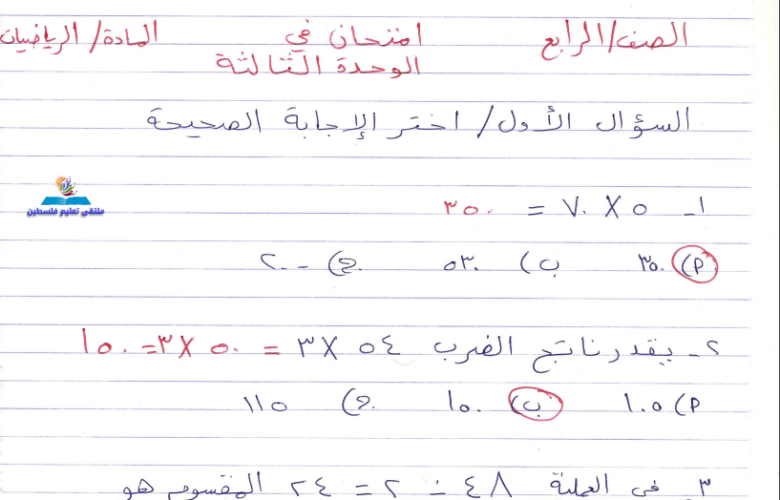 الصف/الرابع امتحان في المادة/الرياضيات
الوحدة الثالثة
السؤال الأول/ اختر الإجابة الصحيحة
ملتقى تعليم فلسطين
١- ٥ × ٧٠ = ٣٥٠
أ) ٣٥٠ ب) ٥٣٠ ج) ٢٠٠
٢- يقدر ناتج الضرب ٥٤ × ٣ = ٥٠ × ٣ = ١٥٠
أ) ١٠٥ ب) ١٥٠ ج) ١١٥
٣- في العملية ٤٨ ÷ ٢ = ٢٤ المقسوم هو